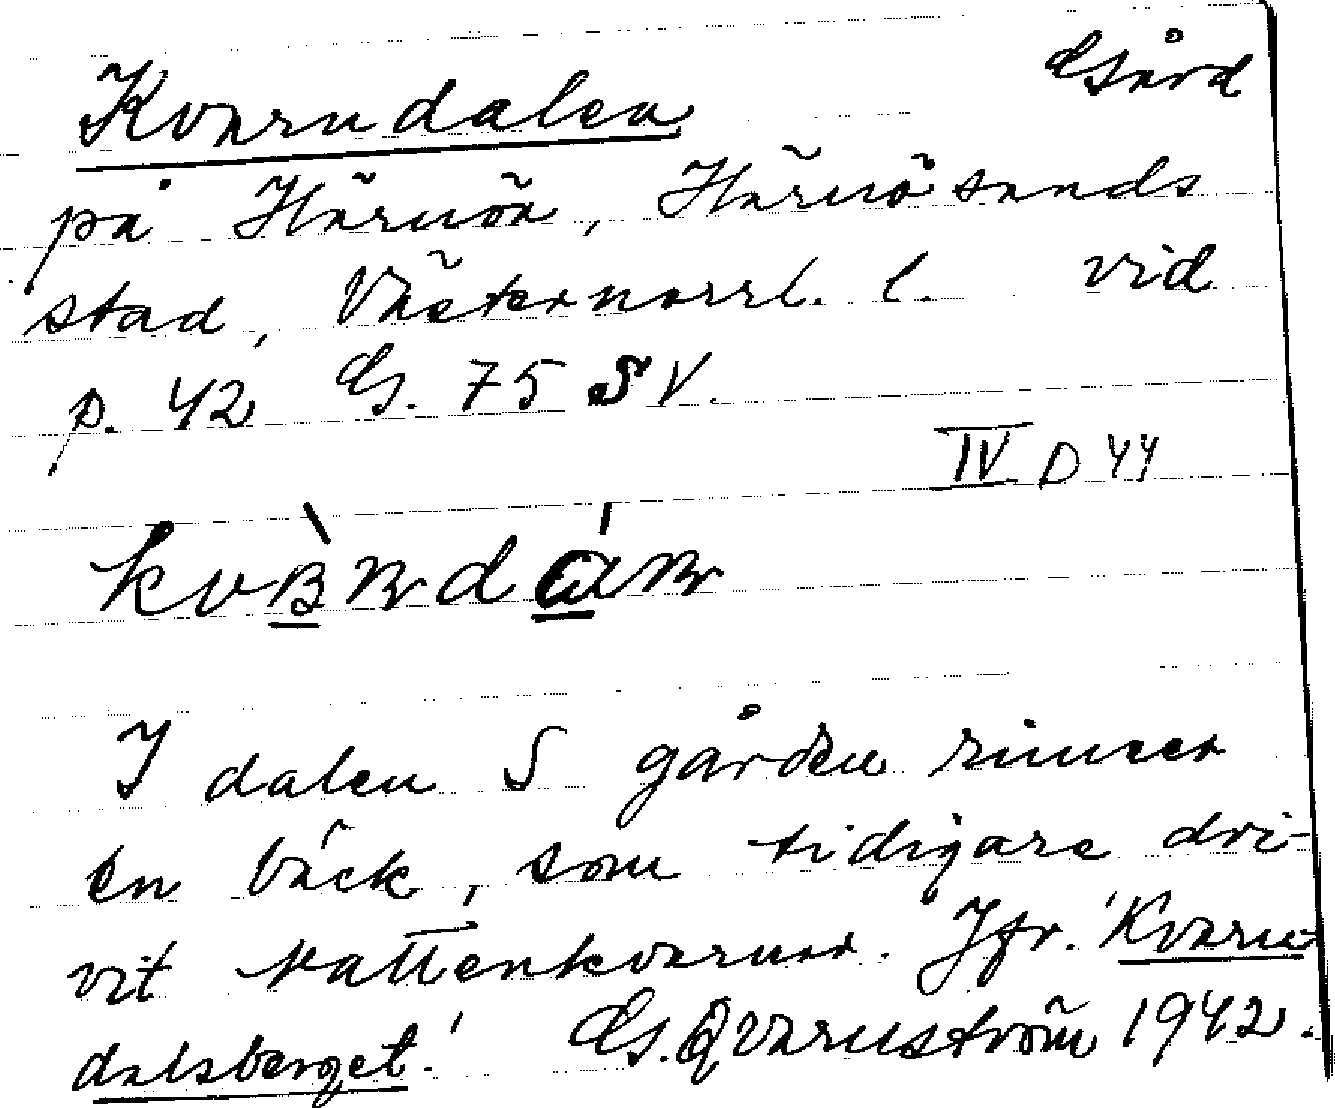 Kvarndalen Gård
på Härnön, Härnösands
stad, Västernorrl. l. vid
p. 42 G. 75 SV.
IV D 44
I dalen S gården rinner
en bäck, som tidigare dri-
vit vattenkvarnar. Jfr. 'Kvarn-
dalsberget.' G. Qvarnström 1942.